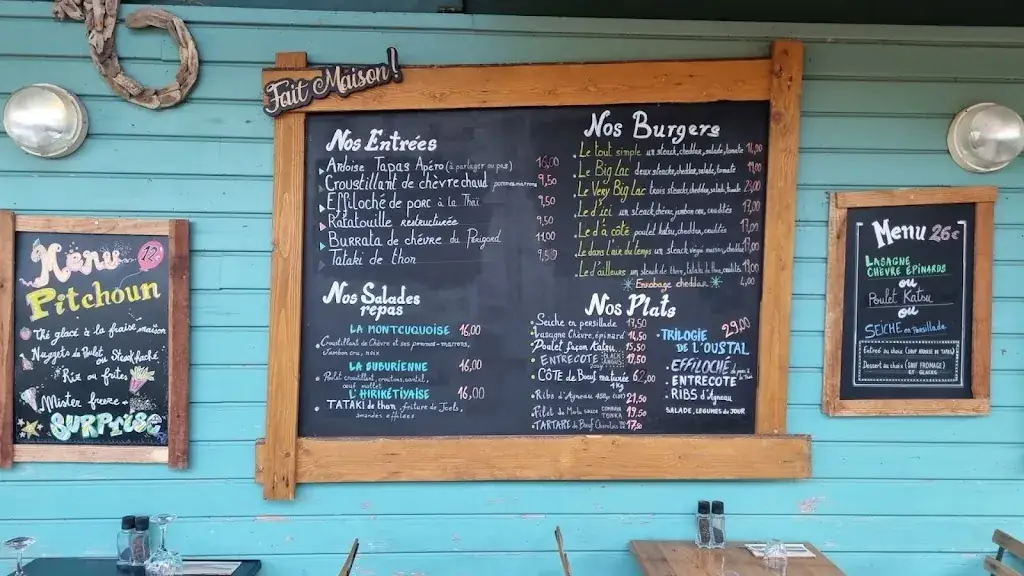 Fait Maison!
Nos Entrées
Ardoise Tapas Apéro (à partager ou pas) 16,00
Croustillant de chèvre chaud pommes marrons 9,50
Effiloché de porc à la Thaï 9,50
Ratatouille restructurée 9,50
Burrata de chèvre du Périgord 11,00
Tataki de thon 9,50
Nos Salades
repas
LA MONTCUQUOISE 16,00
Croustillant de Chèvre et ses pommes-marrons,
Jambon cru, noix
LA SUBURIENNE 16,00
Poulet croustillant, croutons,
oeuf mollet
L'HIRIKÉTIYAISE 16,00
TATAKI de thon, friture de Joels,
amandes effilées
Nos Burgers
Le tout simple un steack, cheddar, salade, tomate 14,00
Le Big Lac deux steacks, cheddar, salade, tomate 19,00
Le Very Big Lac trois steacks, cheddar, salade, tomate 23,00
Le d'ici un steack, chèvre, jambon cru, crudités 17,00
Le d'à côté poulet katsu, cheddar, crudités 17,00
Le dans l'air du temps un steack végé maison, cheddar 17,00
Le d'ailleurs un steack de thon, tataki de thon, crudités 19,00
Enrobage cheddar 4,00
Nos Plats
Seiche en persillade 17,50
Lasagne Chèvre, épinard 14,50
Poulet façon Katsu 15,50
ENTRECÔTE 19,50
CÔTE de Boeuf maturée 62,00
1Kg
Ribs d'Agneau 21,50
Filet de Merlu sauce COMBAVA TONKA 19,50
TARTARE de Boeuf Charolais 17,50
TRILOGIE 29,00
DE L'OUSTAL
EFFILOCHÉ de porc à la Thaï
ENTRECÔTE
RIBS d'Agneau
SALADE, LÉGUMES du JOUR
Menu 12€
Pitchoun
Thé glacé à la fraise maison
Nuggets de Poulet ou Steak haché
Riz ou frites
Mister freeze
SURPRISE
Menu 26€
LASAGNE
CHÈVRE ÉPINARDS
ou
Poulet Katsu
ou
SEICHE en Persillade
Entrée au choix (SAUF ARDOISE ET TATAKI)
ou
Dessert au choix (SAUF FROMAGE)
ET GLACES